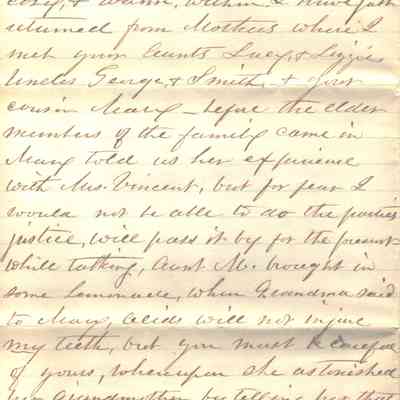 cosy, & warm, within I have just
returned from Mothers where I
met your Aunts Lucy, & Lizzie,
Uncles George, & Smith, & your
cousin Mary – before the elder
members of the family came in
Mary told us her experience
with Mrs. Vincent, but for fear I
would not be able to do the parties
justice, will pass it by for the present –
While talking, Aunt M. brought in
some lemonade, when Grandma said
to Mary, acids will not injure
my teeth, but you must be careful
of yours, whereupon she astonished
her Grandmother by telling her that